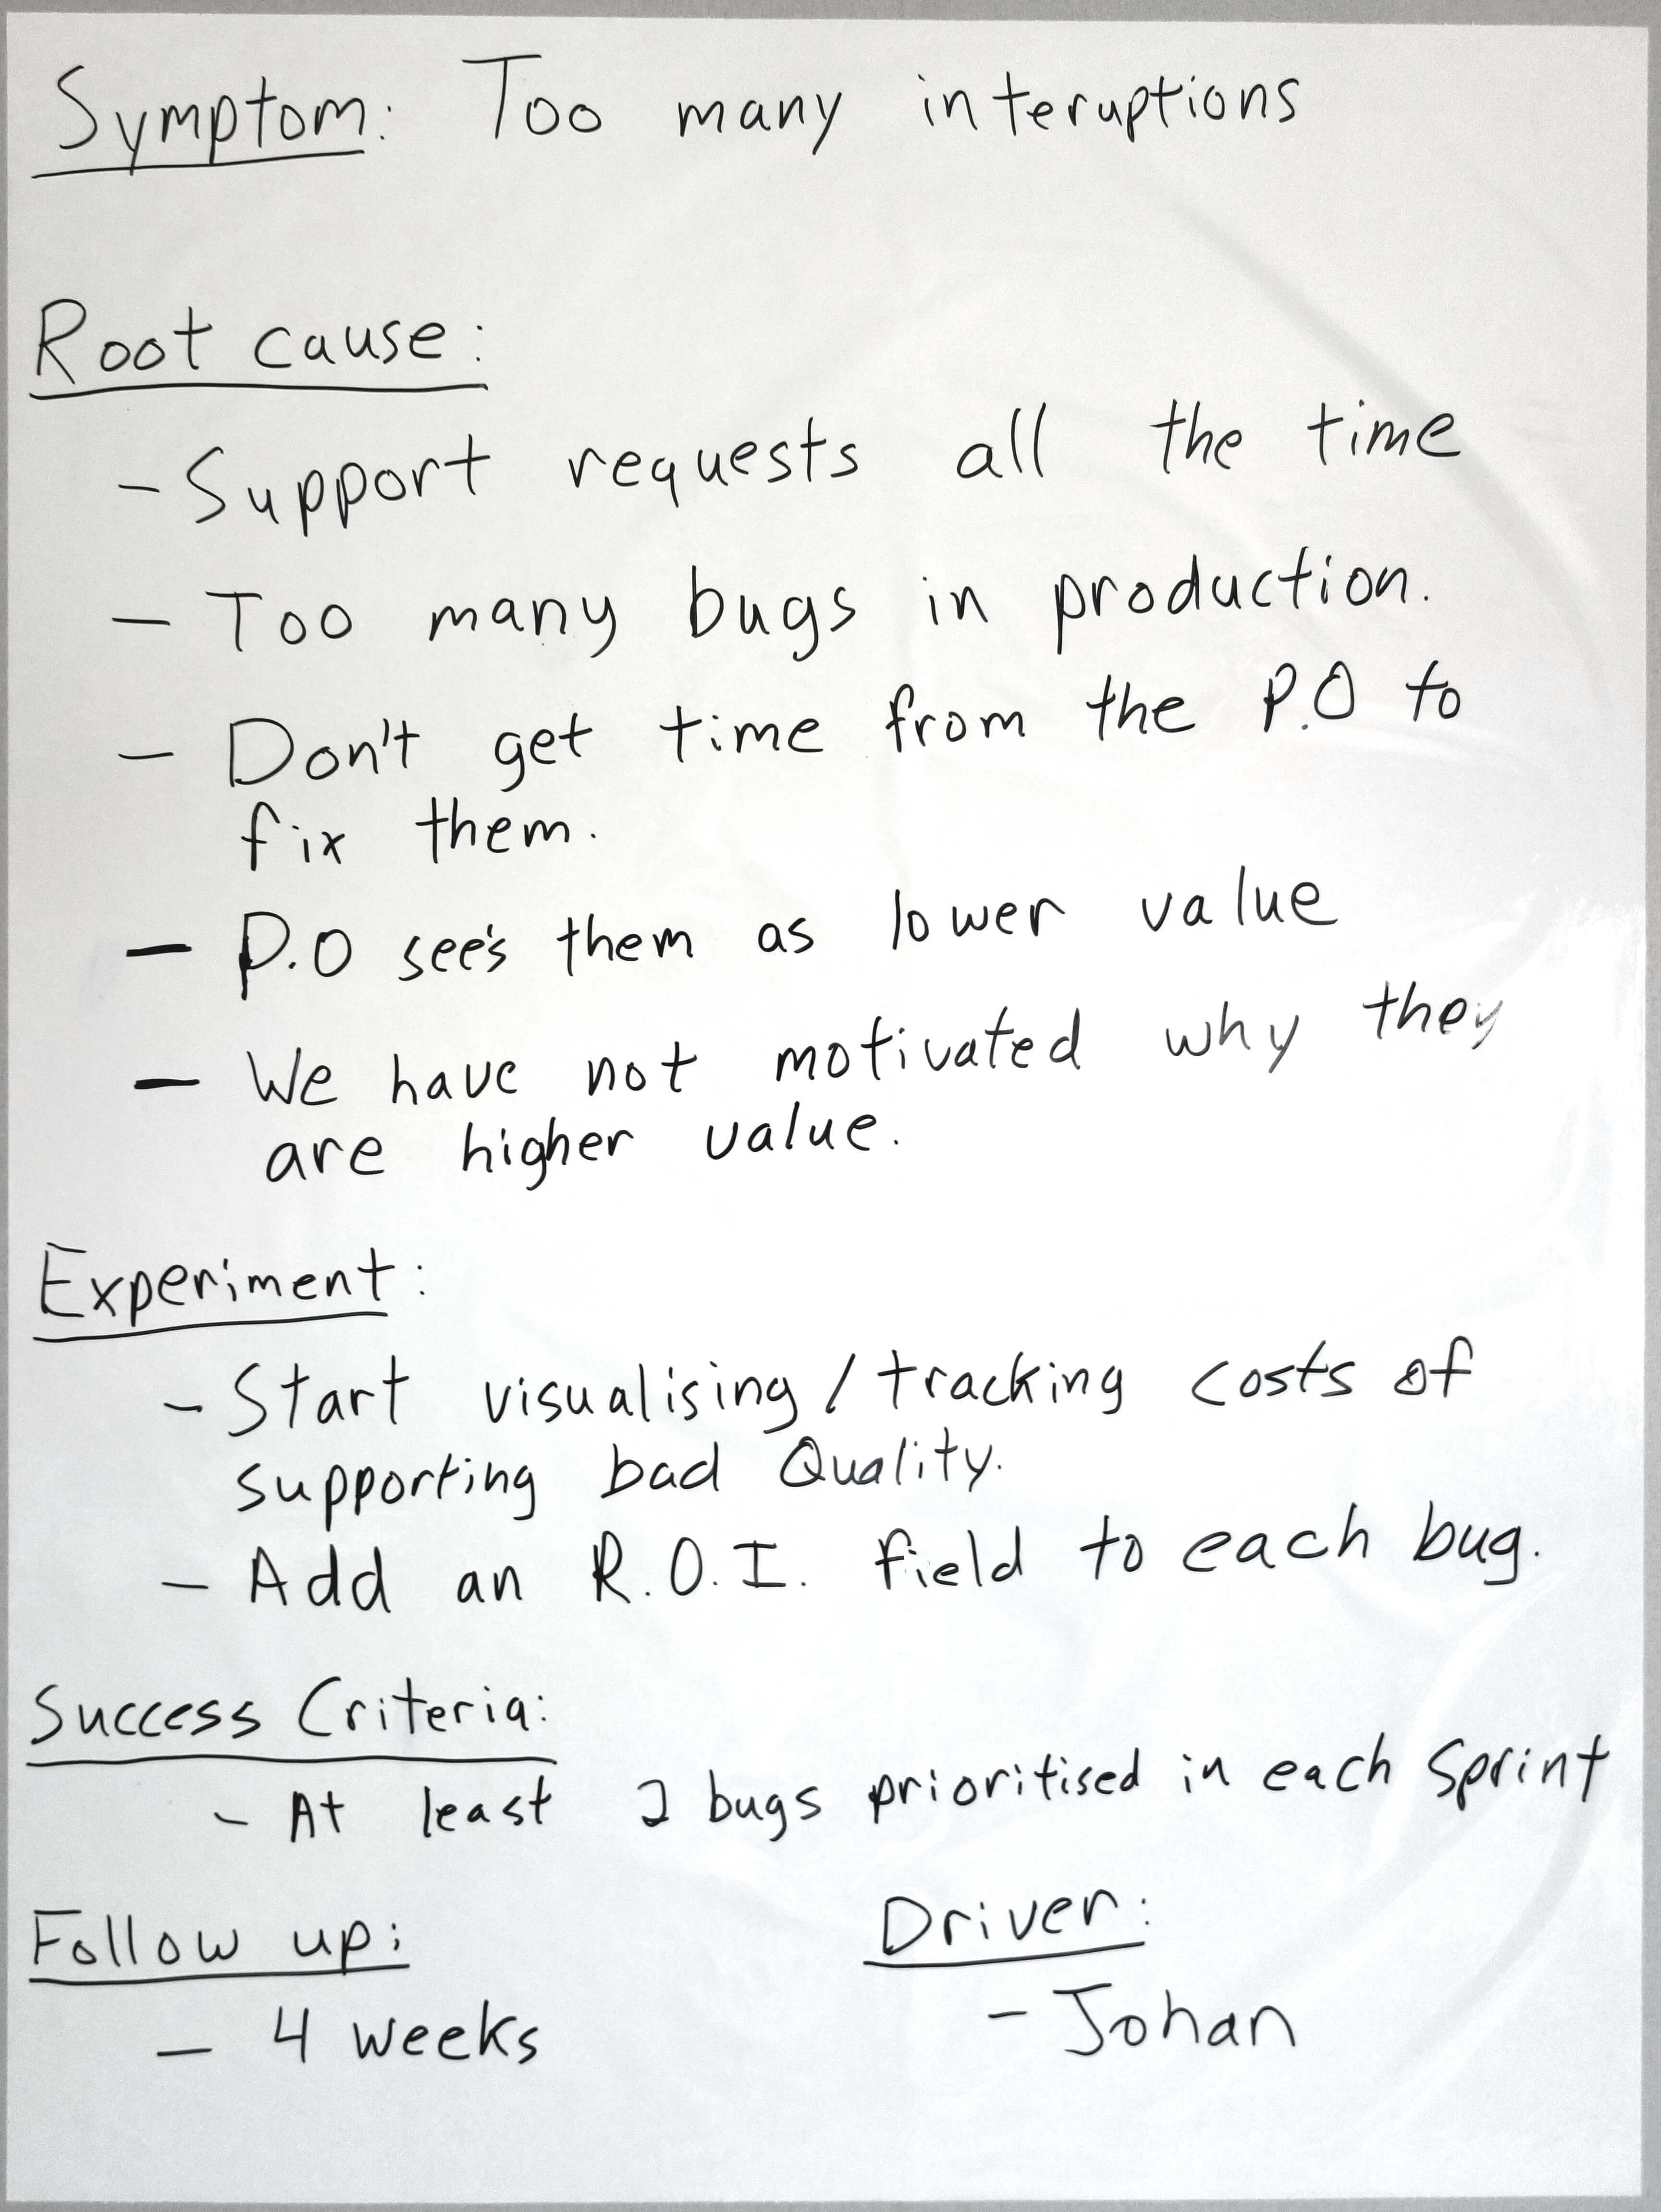 Symptom: Too many interuptions
Root cause:
- Support requests all the time
- Too many bugs in production.
- Don't get time from the P.O to
fix them.
- P.O see's them as lower value
- We have not motivated why they
are higher value.
Experiment:
- Start visualising / tracking costs of
supporting bad Quality.
- Add an R.O.I. field to each bug.
Success Criteria:
- At least 2 bugs prioritised in each Sprint
Follow up:
- 4 weeks
Driver:
- Johan